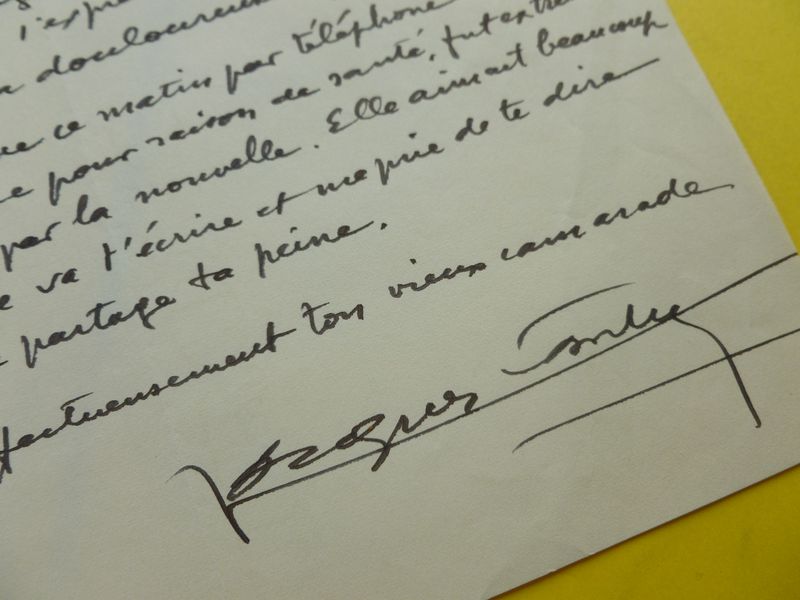 l'expre
douloureux
ce matin par téléphone
pour raison de santé, fut extre
par la nouvelle. Elle aimait beaucoup
va t'écrire et me prie de te dire
partage ta peine.
ffectueusement ton vieux camarade
Jacques